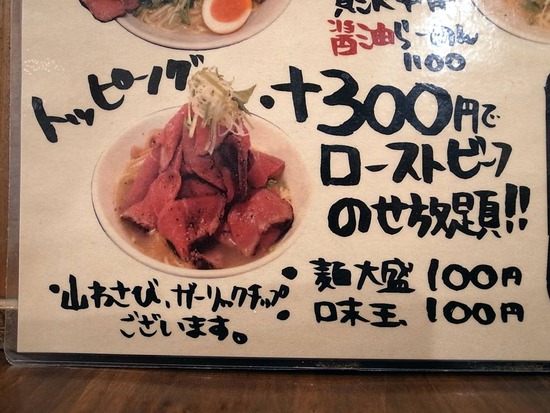 醤油らーめん
1100
トッピング
・+300円で
ローストビーフ
のせ放題!!
麺大盛 100円
味玉 100円
・山わさび、ガーリックチップ
ございます。